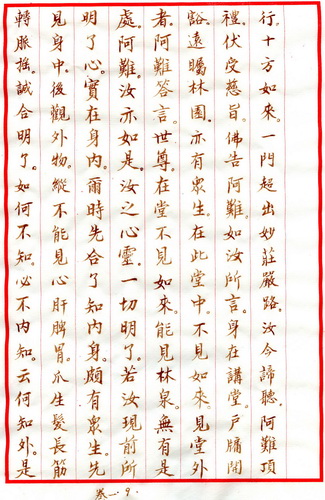 行。十方如來。一門超出妙莊嚴路。汝今諦聽。阿難頂
禮。伏受慈旨。佛告阿難。如汝所言。身在講堂。戶牖開
豁。遠矚林園。亦有眾生。在此堂中。不見如來。見堂外
者。阿難答言。世尊。在堂不見如來。能見林泉。無有是
處。阿難。汝亦如是。汝之心靈。一切明了。若汝現前所
明了心。實在身內。爾時先合了知內身。頗有眾生。先
見身中。後觀外物。縱不能見心肝脾胃。爪生髮長。筋
轉脈搖。誠合明了。如何不知。必不內知。云何知外。是
卷一.9.